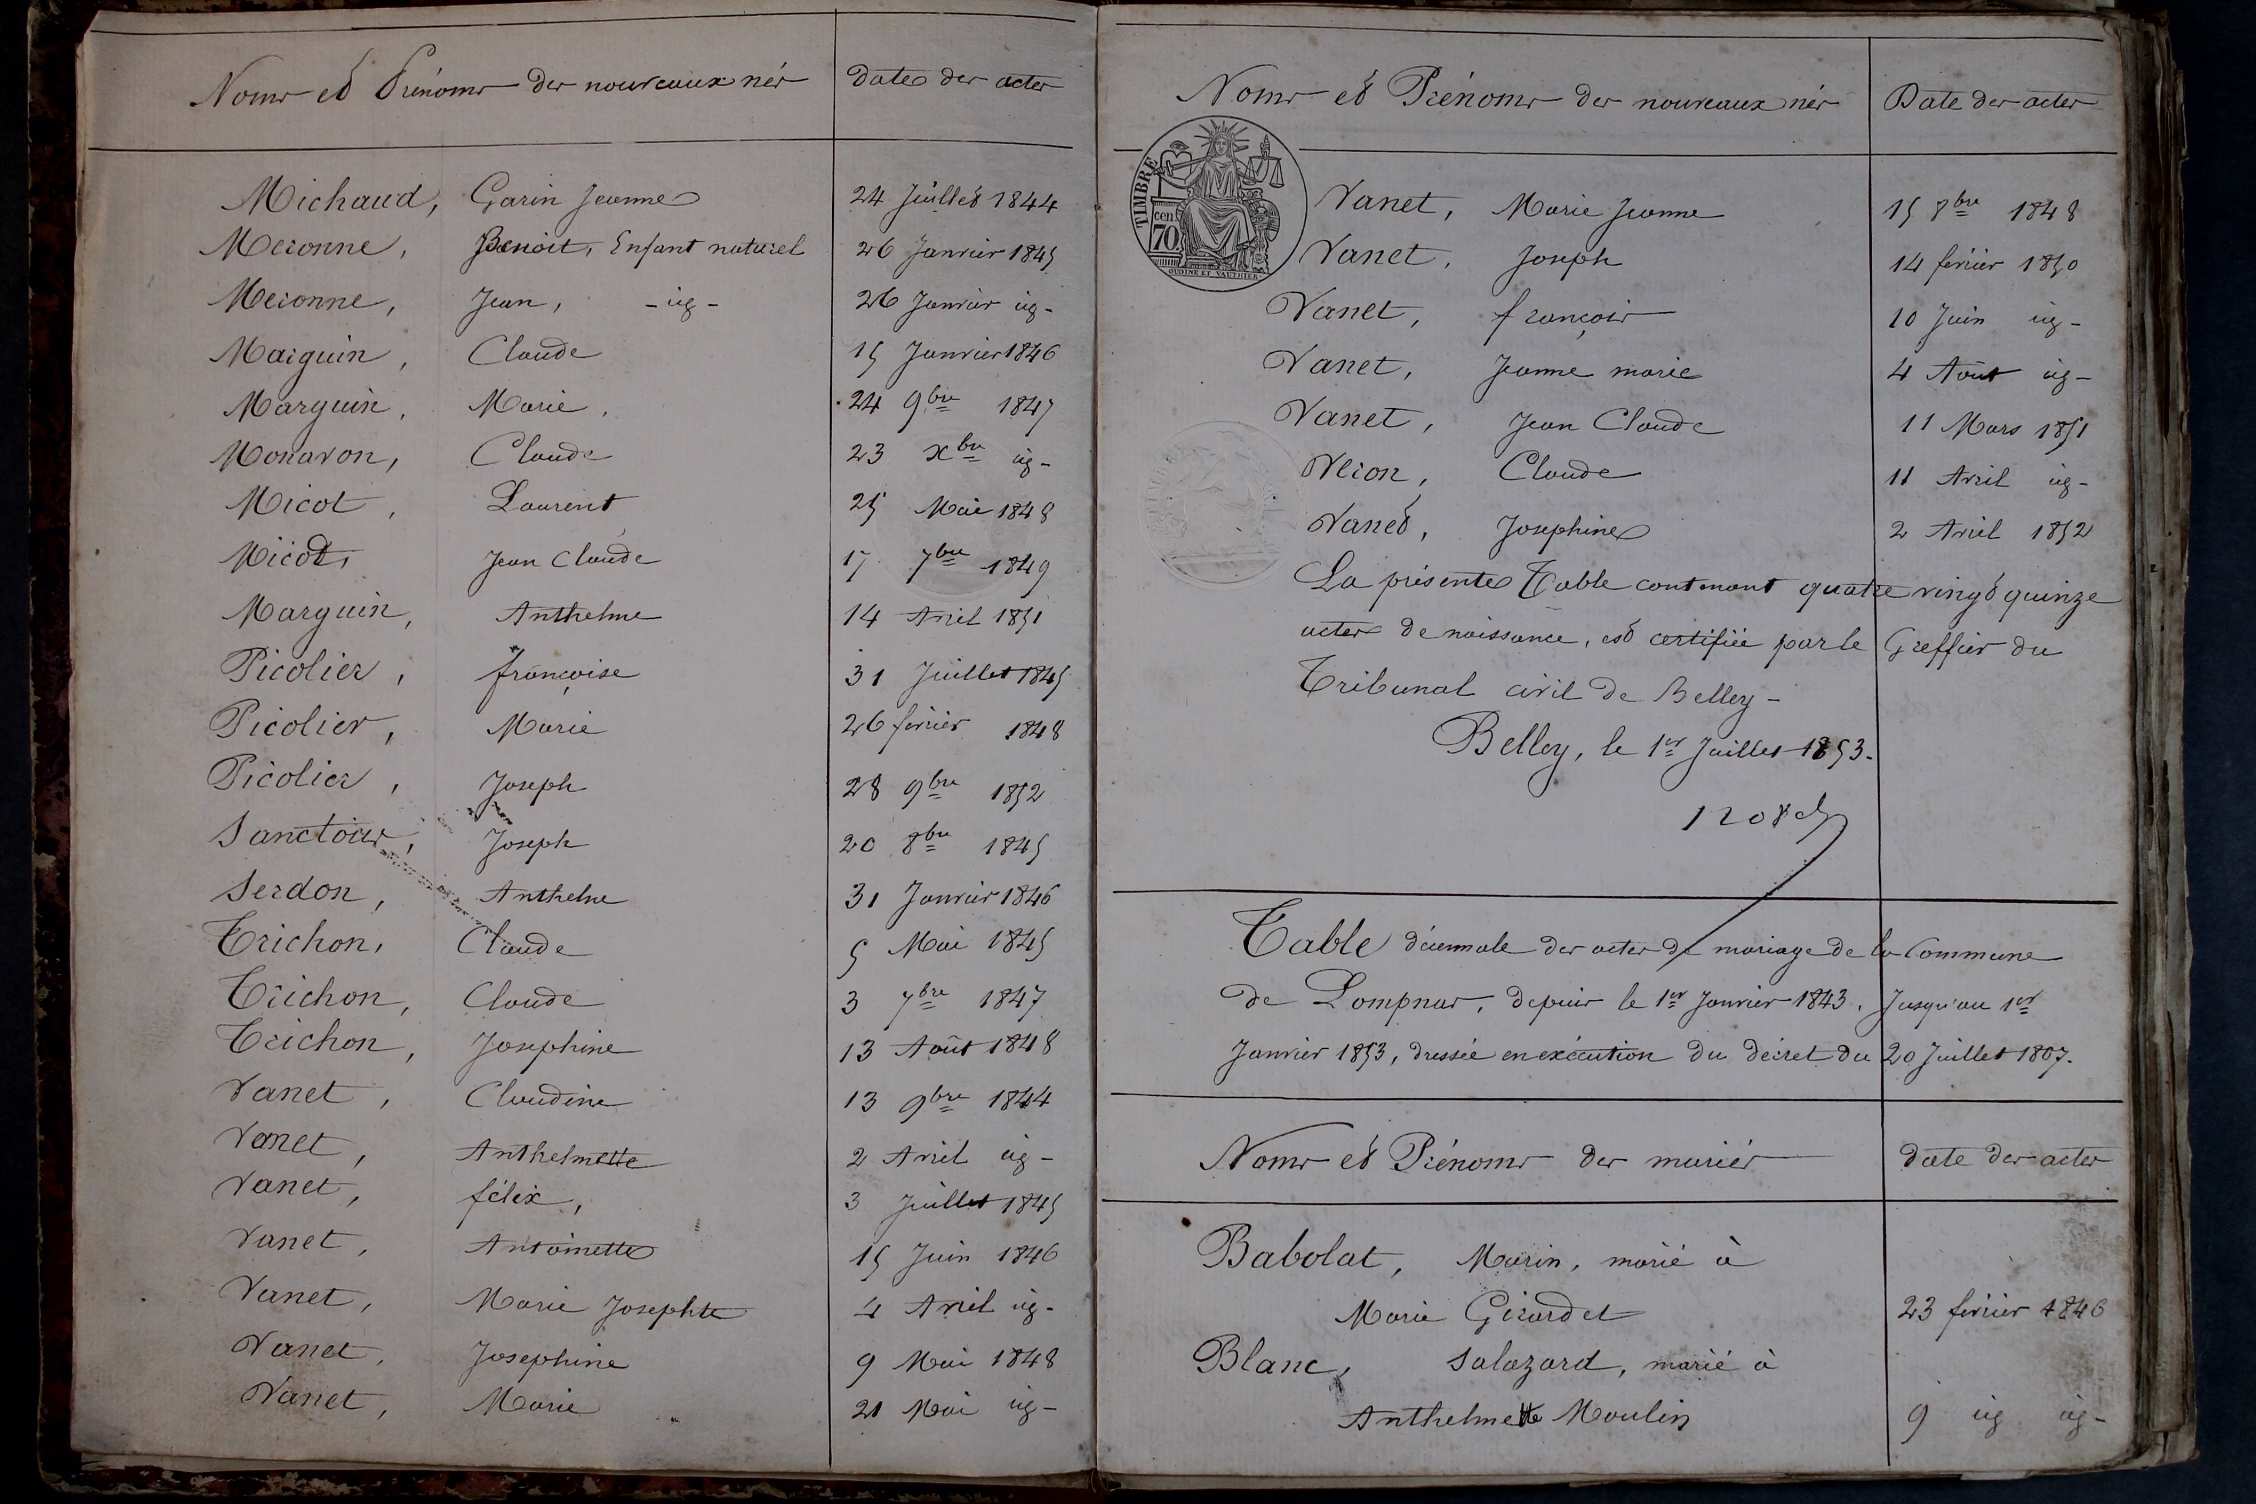 Noms et Prénoms des nouveaux nés Date des actes
Michaud, Garin Jeanne 24 Juillet 1844
Meronne, Benoit, Enfant naturel 26 Janvier 1845
Meronne, Jean, - ig - 26 Janvier ig -
Marguin, Claude 15 Janvier 1846
Marguin, Marie, 24 9bre 1847
Monavon, Claude 23 xbre ig -
Micot, Laurent 25 Mai 1848
Micot, Jean Claude 17 7bre 1849
Marguin, Anthelme 14 Avril 1851
Picolier, françoise 31 Juillet 1845
Picolier, Marie 26 février 1848
Picolier, Joseph 28 9bre 1852
Joseph 20 8bre 1845
Serdon, Anthelme 31 Janvier 1846
Trichon, Claude 5 Mai 1845
Trichon, Claude 3 7bre 1847
Trichon, Josephine 13 Août 1848
Vanet, Claudine 13 9bre 1844
Vanet, Anthelmette 2 Avril ig -
Vanet, félix, 3 Juillet 1845
Vanet, Antoinette 15 Juin 1846
Vanet, Marie Josephte 4 Avril ig -
Vanet, Josephine 9 Mai 1848
Vanet, Marie 21 Mai ig -
Noms et Prénoms des nouveaux nés Date des actes
TIMBRE
cen
70
OUDINÉ ET VAUTHIER
Vanet, Marie Jeanne 15 8bre 1848
Vanet, Joseph 14 février 1850
Vanet, françois 10 Juin ig -
Vanet, Jeanne marie 4 Août ig -
Vanet, Jean Claude 11 Mars 1851
Claude 11 Avril ig -
Vanet, Josephine 2 Avril 1852
La présente Table contenant quatre vingt quinze
actes de naissance, est certifiée par le Greffier du
Tribunal civil de Belley -
Belley, le 1er Juillet 1853.
Table décennale des actes de mariage de la Commune
de Lompnas, depuis le 1er Janvier 1843, Jusqu'au 1er
Janvier 1853, dressée en exécution du décret du 20 Juillet 1807.
Noms et Prénoms des mariés date des actes
Babolat, Marin, marié à
Marie Girardet 23 février 1846
Blanc, Salazard, marié à
Anthelmette Moulin 9 ig ig -